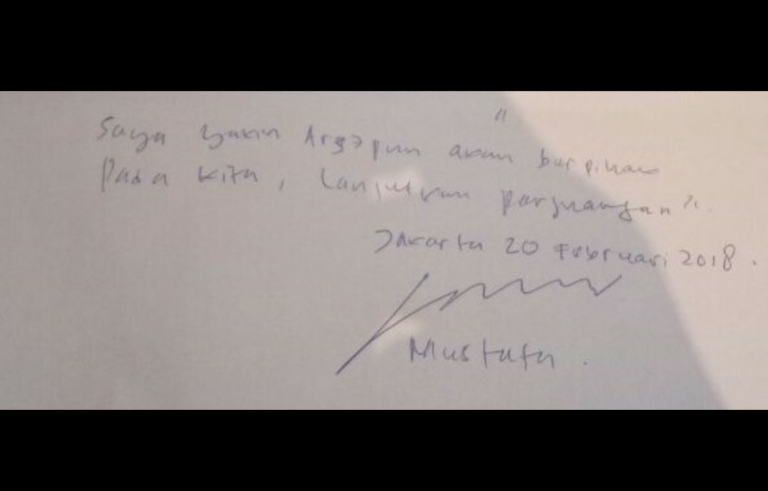 "
Saya yakin Arsapun akan berpihak
Pada kita, Lanjutkan perjuangan".
Jakarta 20 Februari 2018.
Mustafa.